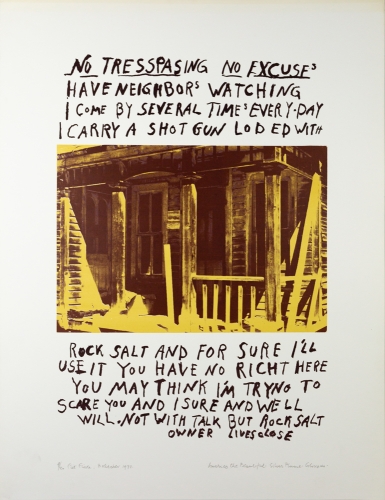 NO TRESSPASING NO EXCUSES
HAVE NEIGHBORS WATCHING
I COME BY SEVERAL TIMES EVERY-DAY
I CARRY A SHOTGUN LODED WITH
ROCK SALT AND FOR SURE I'LL
USE IT YOU HAVE NO RIGHT HERE
YOU MAY THINK I'M TRYNG TO
SCARE YOU AND I SURE AND WELL
WILL. NOT WITH TALK BUT ROCK SALT
OWNER LIVES CLOSE